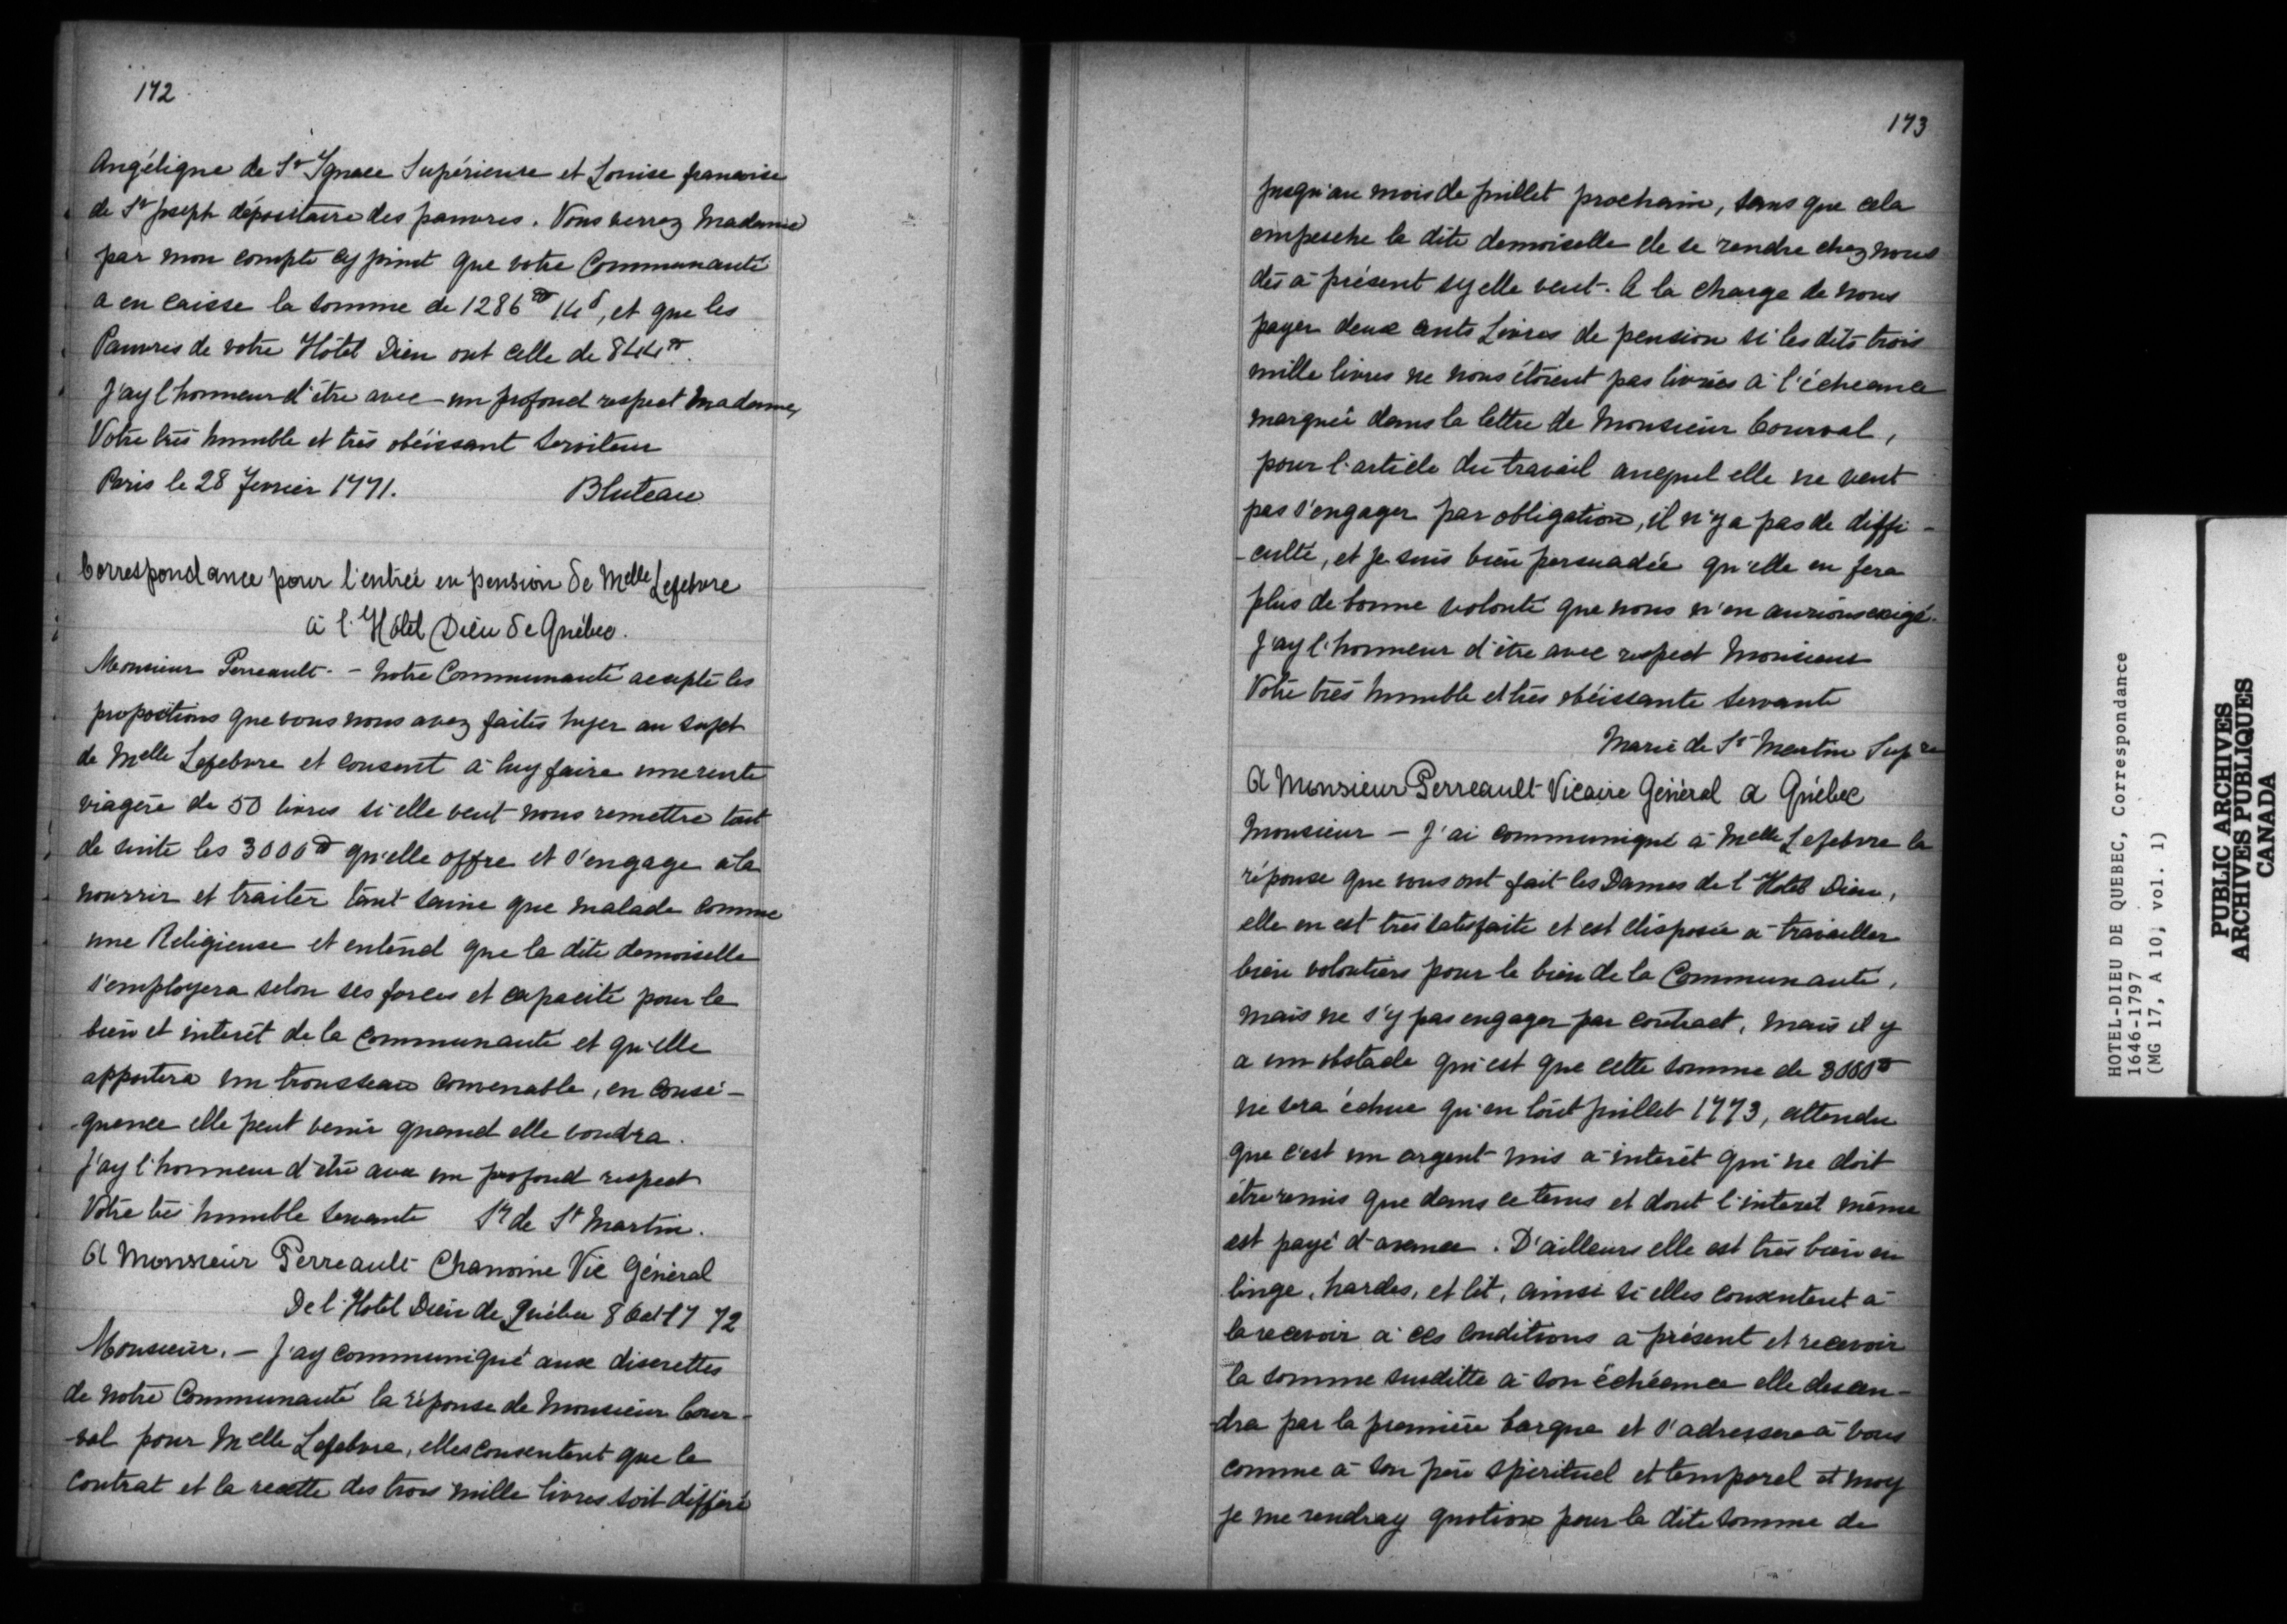 172
Angélique de St Ignace Supérieure et Louise francoise
de St Joseph dépositaire des pauvres. Vous verrez Madame
par mon compte cy joint que votre Communauté
a en caisse la somme de 1286 ₶ 14 s, et que les
Pauvres de votre Hôtel Dieu ont celle de 844 ₶.
J'ay l'honneur d'être avec un profond respect Madame,
Votre très humble et très obéissant serviteur
Paris le 28 Fevrier 1771. Bluteau
Correspondance pour l'entrée en pension de Melle Lefebvre
à l'Hôtel Dieu de Québec.
Monsieur Perreault - Notre Communauté acepte les
propositions que vous nous avez faites hyer au sujet
de Melle Lefebvre et consent à luy faire une rente
viagère de 50 livres si elle veut nous remettre tout
de suite les 3000 ₶ qu'elle offre et s'engage à la
nourrir et traiter tant saine que malade comme
une Religieuse et entend que la dite demoiselle
s'employera selon ses forces et capacité pour le
bien et interêt de la Communauté et qu'elle
apportera un trousseau convenable, en consé-
quence elle peut venir quand elle voudra.
J'ay l'honneur d'être avec un profond respect
Votre très humble servante Sr de St Martin.
A Monsieur Perreault Chanoine Vic Général
De l'Hotel Dieu de Québec 8 Oct 1772
Monsieur, - J'ay communiqué aux discrettes
de notre Communauté la réponse de Monsieur Cour-
-val pour Melle Lefebvre, elles consentent que le
contrat et la recette des trois mille livres soit différé
173
jusqu'au mois de juillet prochain, sans que cela
empesche la dite demoiselle de se rendre chez nous
dès à présent sy elle veut. A la charge de nous
payer deux cents Livres de pension si les dits trois
mille livres ne nous étoient pas livrées à l'écheance
marquée dans la lettre de Monsieur Courval,
pour l'article du travail auquel elle ne veut
pas s'engager par obligation, il n'y a pas de diffi-
-culté, et je suis bien persuadée qu'elle en fera
plus de bonne volonté que nous n'en aurions exigé.
J'ay l'honneur d'être avec respect Monsieur
Votre très humble et très obéissante servante
Marie de St Martin Supre
A Monsieur Perreault Vicaire Général a Québec
Monsieur - J'ai communiqué à Melle Lefebvre la
réponse que vous ont fait les Dames de l'Hotel Dieu,
elle en est très satisfaite et est disposée a travailler
bien volontiers pour le bien de la Communauté,
mais ne s'y pas engager par contract, mais il y
a un obstacle qui est que cette somme de 3000 ₶
ne sera échue qu'en tout juillet 1773, attendu
que c'est un argent mis a interêt qui ne doit
être remis que dans ce tems et dont l'interet même
est payé d'avance. D'ailleurs elle est très bien en
linge, hardes, et lit, ainsi si elles consentent à
la recevoir à ces conditions a présent et recevoir
la somme susditte à son échéance elle descen-
-dra par la première barque et s'adressera à vous
comme à son père spirituel et temporel et moy
je me rendray quotion pour la dite somme de
HOTEL-DIEU DE QUEBEC, Correspondance
1646-1797
(MG 17, A 10, vol. 1)
PUBLIC ARCHIVES
ARCHIVES PUBLIQUES
CANADA